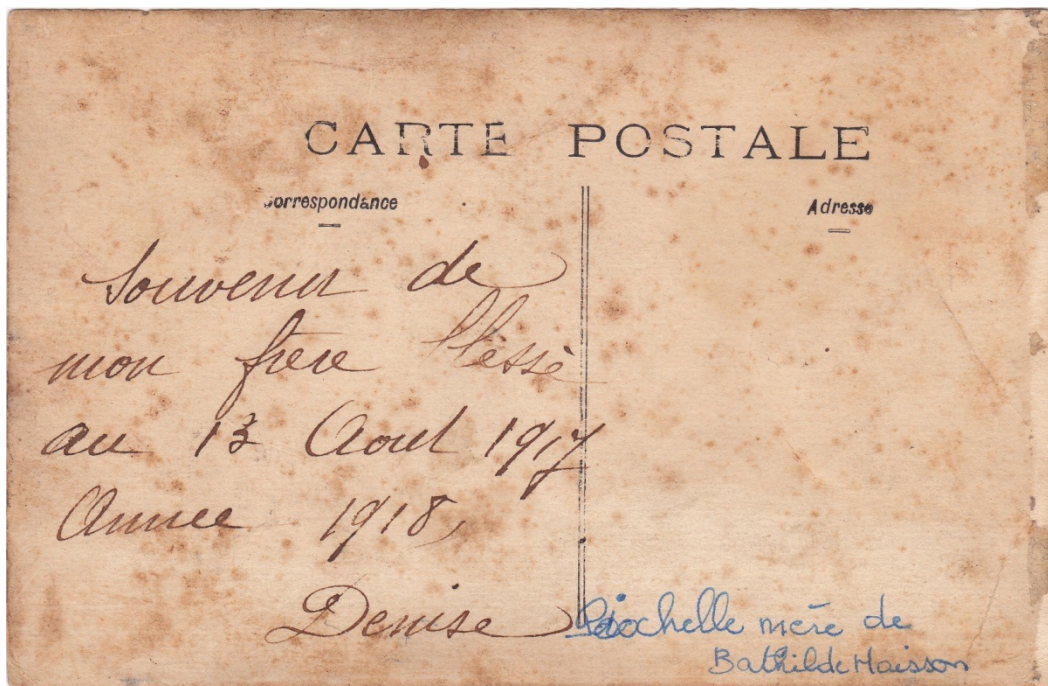 CARTE POSTALE
Correspondance
Adresse
Souvenir de
mon frère blessé
au 13 Aout 1917
Année 1918,
Denise
mère de
Bathilde Maisson